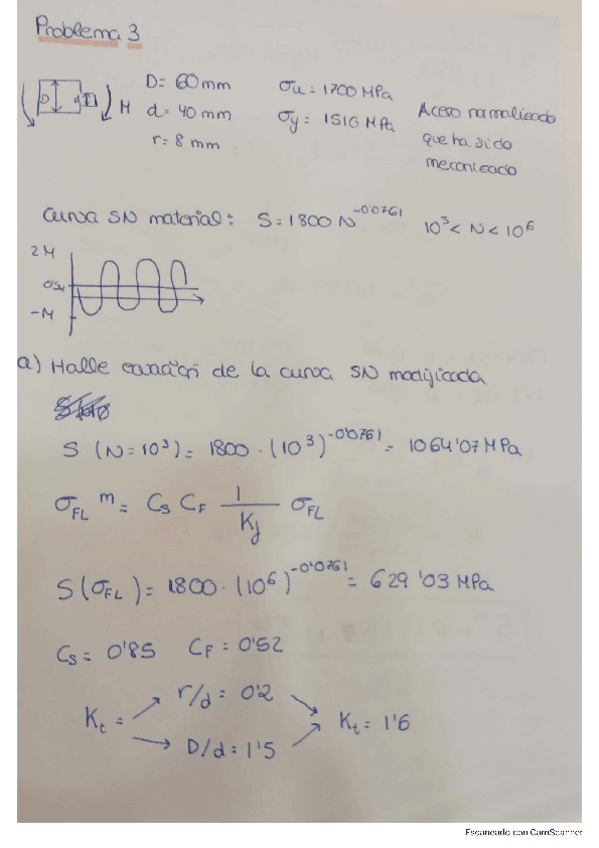 Problema 3
D= 60mm
d= 40mm
r= 8 mm
σu = 1700 MPa
σy = 1516 MPa
Acero normalizado
que ha sido
mecanizado
D d M
Curva SN material: S= 1800 N^-0'0761 10³ < N < 10⁶
2M
-M
a) Halle ecuación de la curva SN modificada
S (N=10³) = 1800 · (10³)^-0'0761 = 1064'07 MPa
σFL^m = Cs CF 1/Kf σFL
S(σFL) = 1800 · (10⁶)^-0'0761 = 629'03 MPa
Cs = 0'85 CF = 0'52
r/d = 0'2
Kt = Kt = 1'6
D/d = 1'5
Escaneado con CamScanner